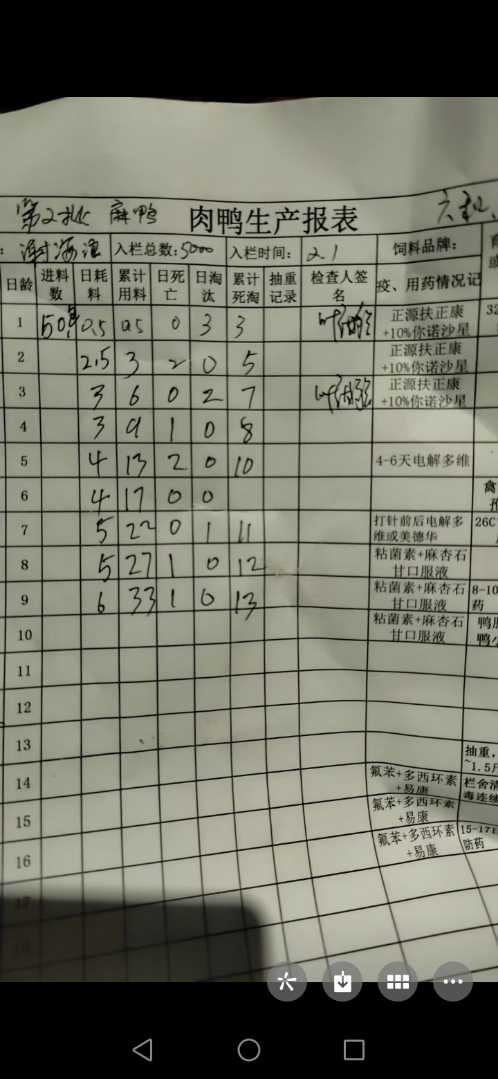 第2批 麻鸭 肉鸭生产报表
入栏总数:5000 入栏时间: 2.1 饲料品牌:
日龄 进料数 日耗料 累计用料 日死亡 日淘汰 累计死淘 抽重记录 检查人签名 疫、用药情况记
1 0.5 0.5 0 3 3 正源扶正康+10%你诺沙星
2 2.5 3 2 0 5 正源扶正康+10%你诺沙星
3 3 6 0 2 7 正源扶正康+10%你诺沙星
4 3 9 1 0 8
5 4 13 2 0 10 4-6天电解多维
6 4 17 0 0 禽
7 5 22 0 1 11 打针前后电解多维或美德华 26C
8 5 27 1 0 12 粘菌素+麻杏石甘口服液
9 6 33 1 0 13 粘菌素+麻杏石甘口服液 8-10药
10 粘菌素+麻杏石甘口服液
11
12
13 抽重，~1.5斤
14 氟苯+多西环素+易康
15 氟苯+多西环素+易康
16 氟苯+多西环素+易康 防药
17
18